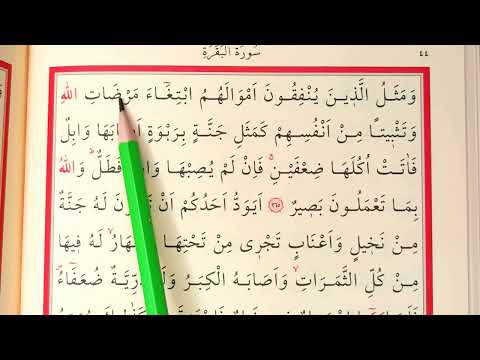 سُورَةُ الْبَقَرَةِ ٤٤
وَمَثَلُ الَّذ۪ينَ يُنْفِقُونَ اَمْوَالَهُمُ ابْتِغَٓاءَ مَرْضَاتِ اللّٰهِ
وَتَثْب۪يتاً مِنْ اَنْفُسِهِمْ كَمَثَلِ جَنَّةٍ بِرَبْوَةٍ وَابِلٌ
فَاٰتَتْ اُكُلَهَا ضِعْفَيْنِۚ فَاِنْ لَمْ يُصِبْهَا فَطَلٌّۜ وَاللّٰهُ
بِمَا تَعْمَلُونَ بَص۪يرٌ ﴿٢٦٥﴾ اَيَوَدُّ اَحَدُكُمْ اَنْ لَهُ جَنَّةٌ
مِنْ نَخ۪يلٍ وَاَعْنَابٍ تَجْر۪ي مِنْ تَحْتِهَا لَهُ ف۪يهَا
مِنْ كُلِّ الثَّمَرَاتِۙ وَاَصَابَهُ الْكِبَرُ ضُعَفَٓاءُۖ